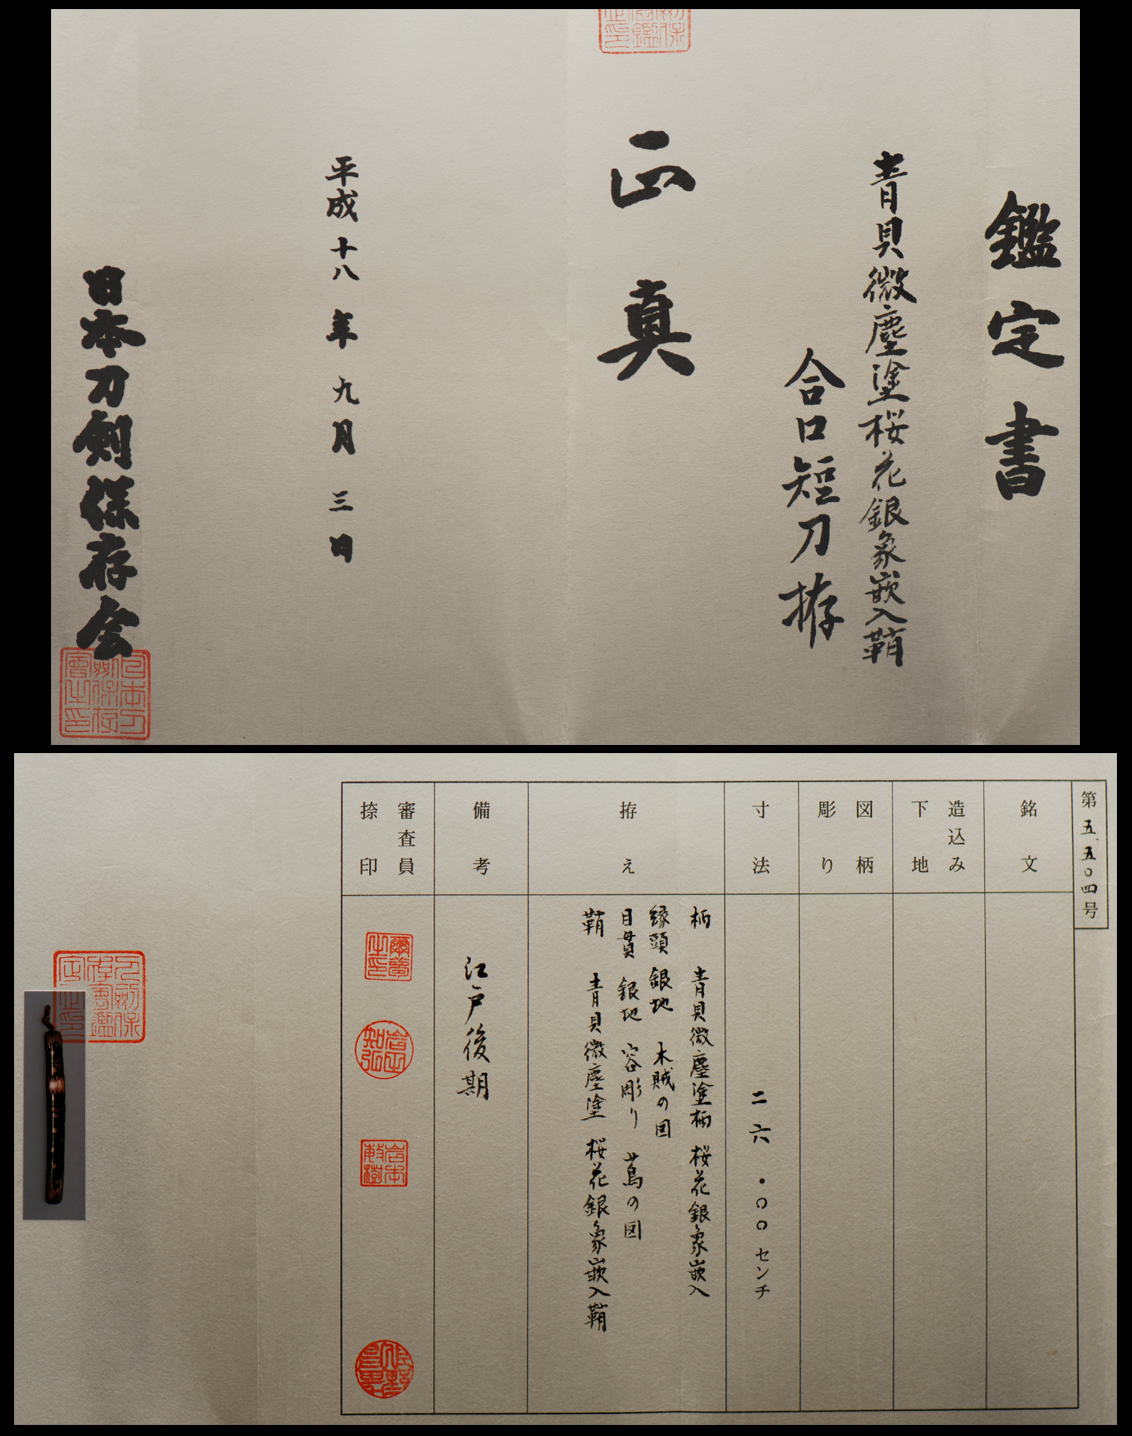 鑑定書
青貝微塵塗桜花銀象嵌入鞘
合口短刀拵
正真
平成十八年九月三日
日本刀剣保存会
第五五〇四号
銘文
造込み
下地
図柄
彫り
寸法
二六・〇〇センチ
拵え
柄 青貝微塵塗柄 桜花銀象嵌入
縁頭 銀地 木賊の図
目貫 銀地 容彫り 蔦の図
鞘 青貝微塵塗 桜花銀象嵌入鞘
備考
江戸後期
審査員
捺印